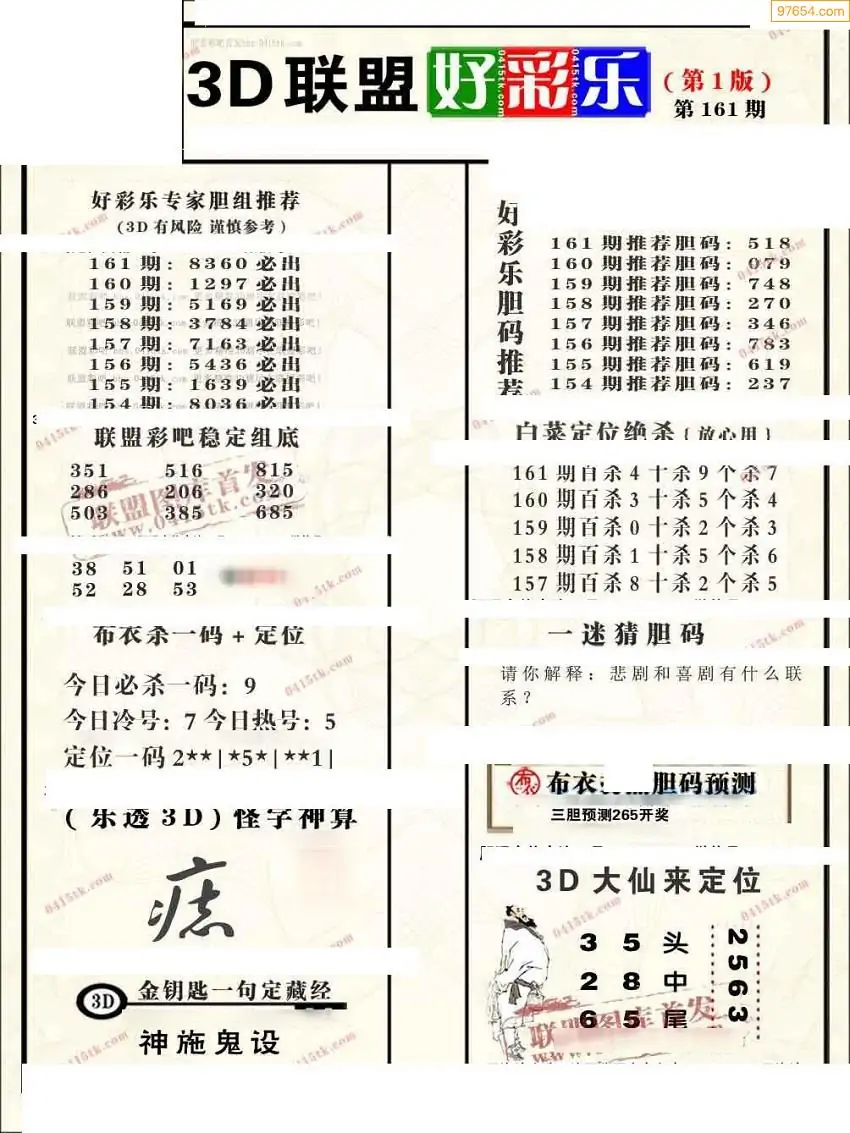 97654.com
3D联盟好彩乐
(第1版)
第161期
好彩乐专家胆组推荐
(3D有风险 谨慎参考)
161期：8360必出
160期：1297必出
159期：5169必出
158期：3784必出
157期：7163必出
156期：5436必出
155期：1639必出
154期：8036必出
联盟彩吧稳定组底
351 516 815
286 206 320
503 385 685
38 51 01
52 28 53
布衣杀一码+定位
今日必杀一码：9
今日冷号：7 今日热号：5
定位一码2**|*5*|**1|
(乐透3D)怪字神算
痣
3D
金钥匙一句定藏经
神施鬼设
好彩乐胆码推荐
161期推荐胆码：518
160期推荐胆码：079
159期推荐胆码：748
158期推荐胆码：270
157期推荐胆码：346
156期推荐胆码：783
155期推荐胆码：619
154期推荐胆码：237
白菜定位绝杀{放心用}
161期百杀4十杀9个杀7
160期百杀3十杀5个杀4
159期百杀0十杀2个杀3
158期百杀1十杀5个杀6
157期百杀8十杀2个杀5
一迷猜胆码
请你解释：悲剧和喜剧有什么联
系？
布衣
胆码预测
三胆预测265开奖
3D大仙来定位
3 5 头
2 8 中
6 5 尾
2563
联盟图库首发
www.0415tk.com
0415tk.com